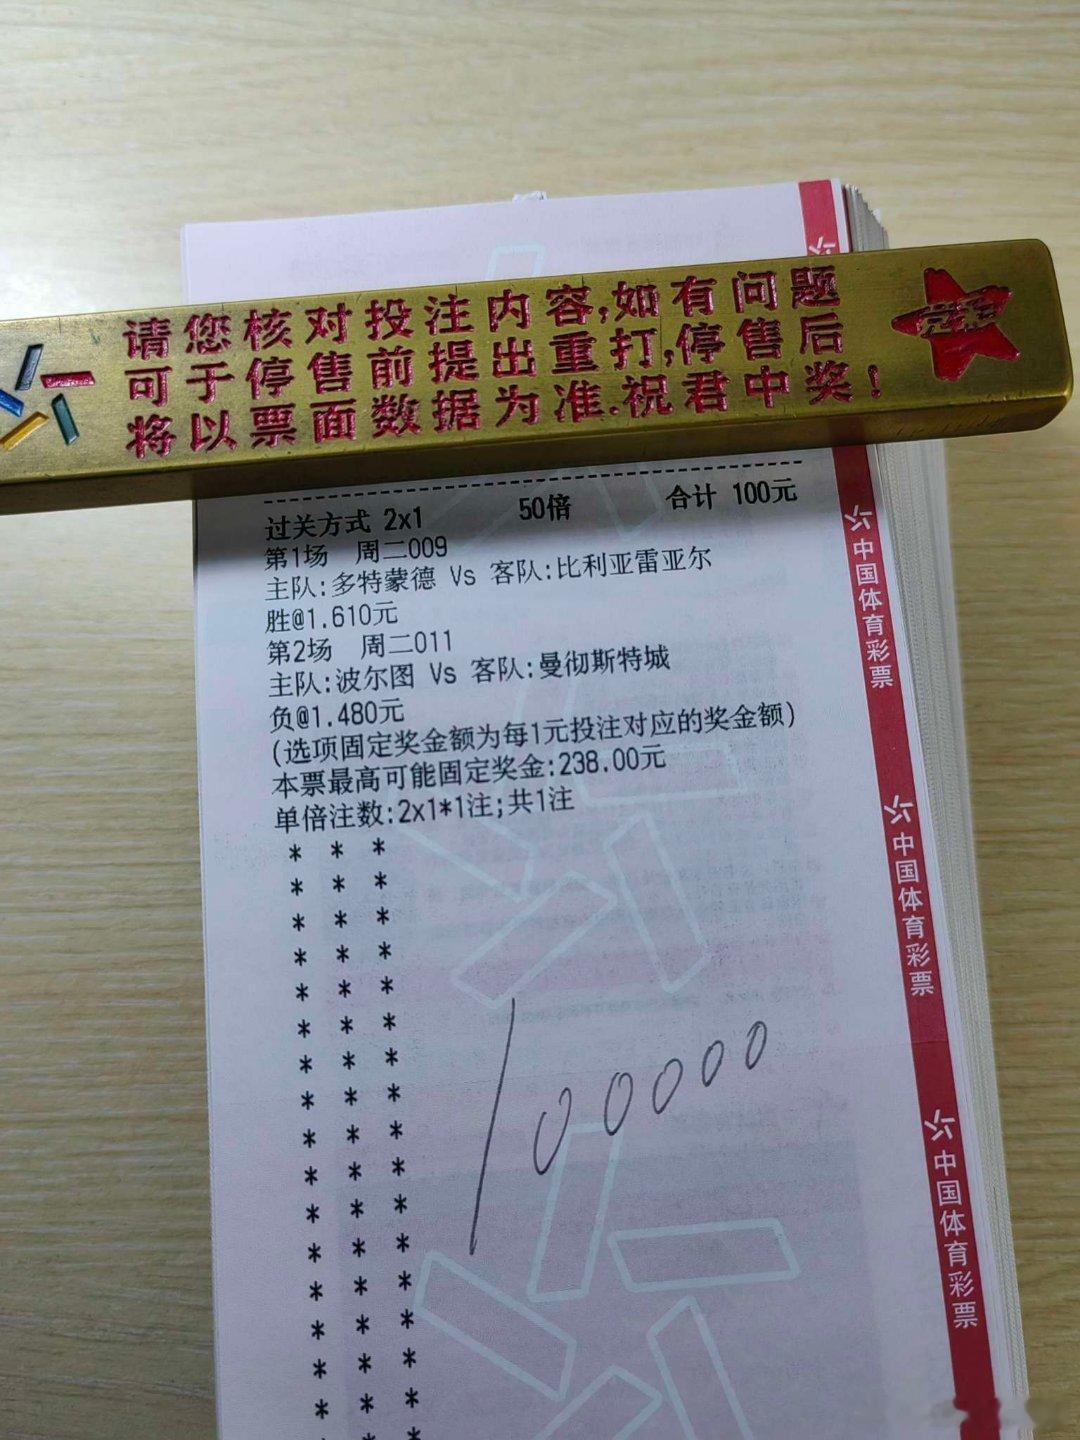 请您核对投注内容,如有问题
可于停售前提出重打,停售后
将以票面数据为准.祝君中奖!
过关方式 2x1 50倍 合计 100元
第1场 周二009
主队:多特蒙德 Vs 客队:比利亚雷亚尔
胜@1.610元
第2场 周二011
主队:波尔图 Vs 客队:曼彻斯特城
负@1.480元
(选项固定奖金额为每1元投注对应的奖金额)
本票最高可能固定奖金:238.00元
单倍注数:2x1*1注;共1注
* * *
* * *
* * *
* * *
* * *
* * *
* * *
* * *
* * *
* * *
* * *
* * *
* * *
* * *
* * *
* * *
* * *
100000
中国体育彩票
中国体育彩票
中国体育彩票